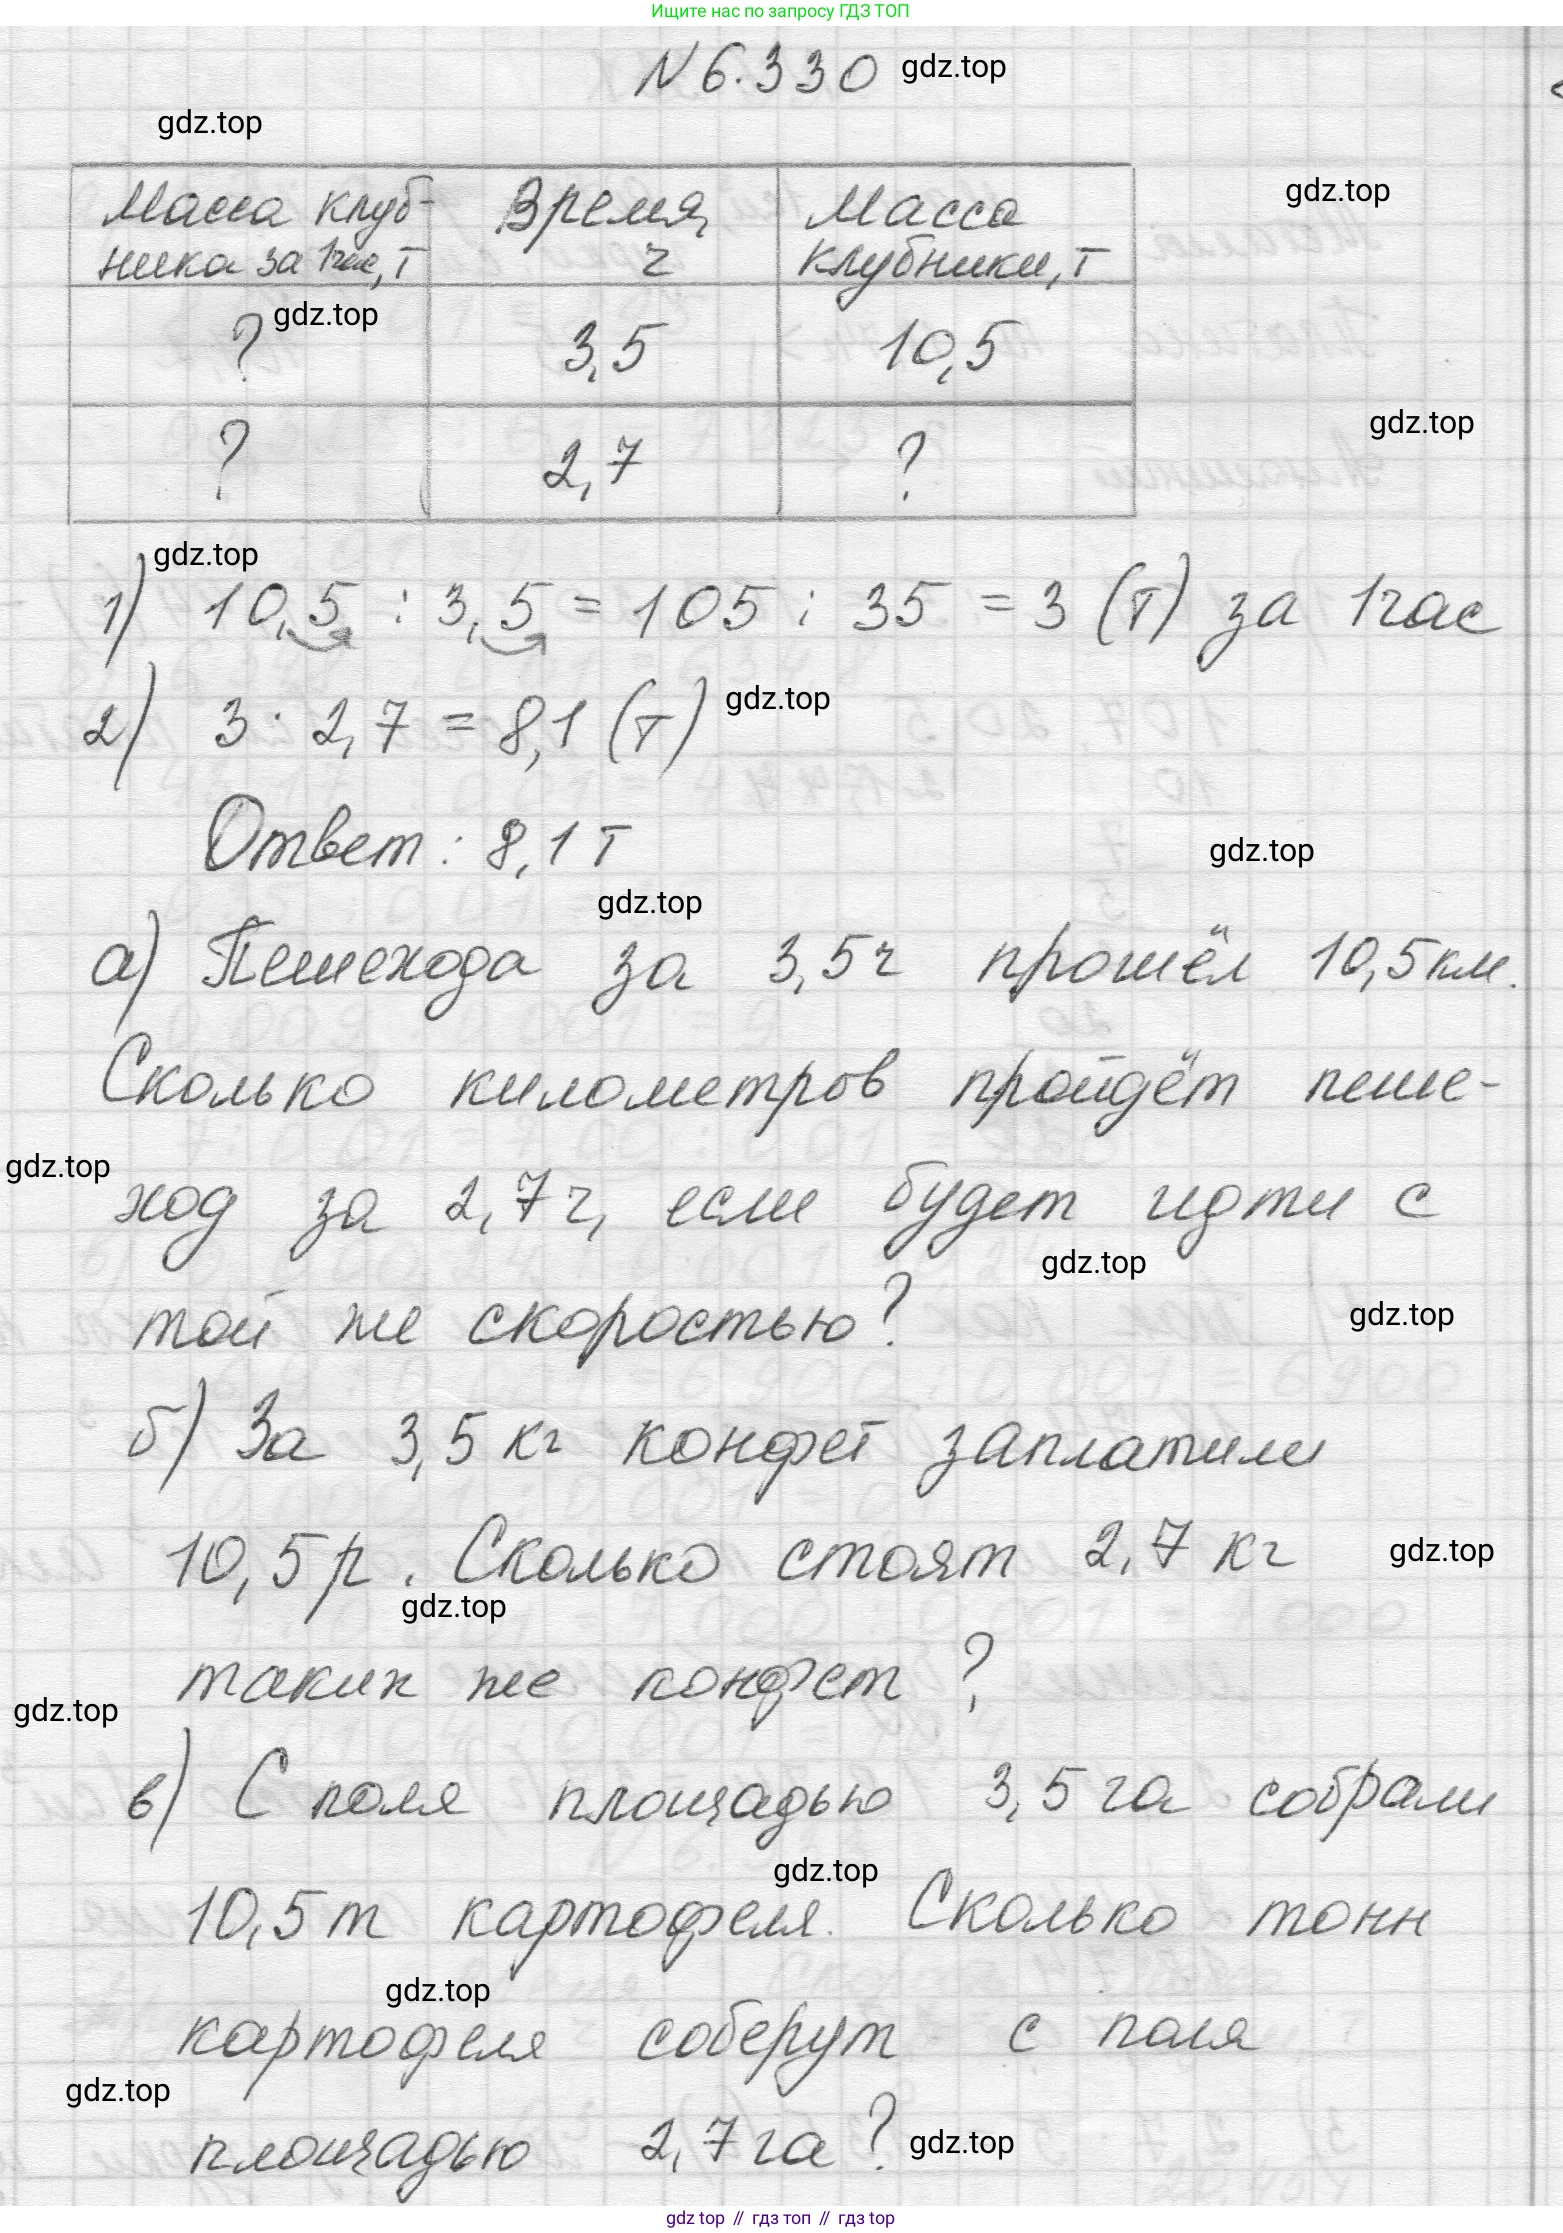 Ищите нас по запросу ГДЗ ТОП
N 6.330 gdz.top
gdz.top
Масса клуб- Время, Масса gdz.top
ника за 1час, т ч клубники, т
? gdz.top 3,5 10,5
gdz.top
? 2,7 ?
gdz.top
1) 10,5 : 3,5 = 105 : 35 = 3 (т) за 1час
2) 3 · 2,7 = 8,1 (т) gdz.top
Ответ: 8,1 т
gdz.top
gdz.top
а) Пешехода за 3,5ч прошёл 10,5км.
Сколько километров пройдёт пеше-
gdz.top
ход за 2,7ч, если будет идти с
gdz.top
gdz.top
той же скоростью?
б) За 3,5 кг конфет заплатили
10,5 р. Сколько стоят 2,7 кг gdz.top
gdz.top
таких же конфет ?
gdz.top
в) С поля площадью 3,5 га собрали
gdz.top
10,5 т картофеля. Сколько тонн
gdz.top
картофеля соберут с поля
gdz.top
площадью 2,7 га ? gdz.top
gdz top // гдз топ // гдз top